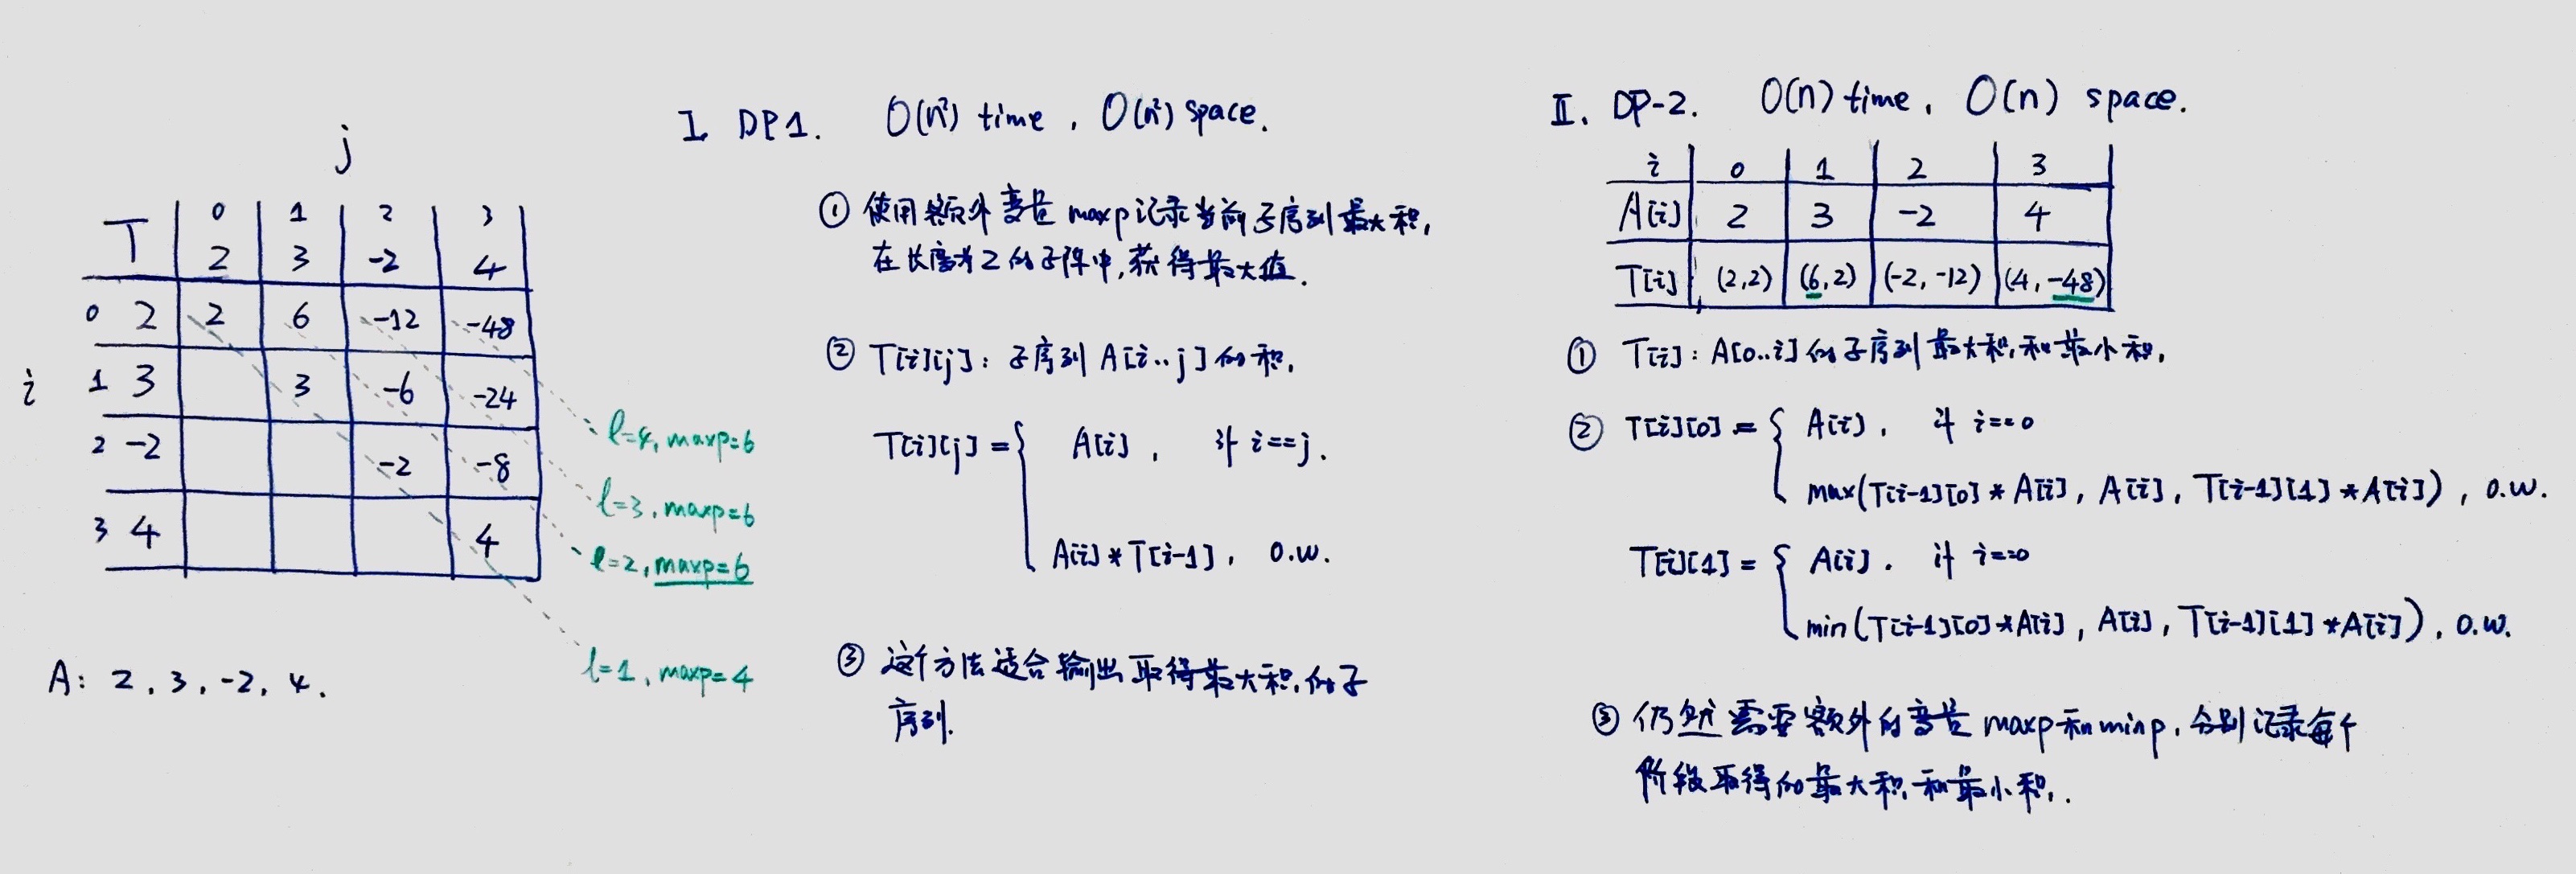 j
T 0 1 2 3
2 3 -2 4
0 2 2 6 -12 -48
i 1 3 3 -6 -24
2 -2 -2 -8
3 4 4
l=4, maxp=6
l=3, maxp=6
l=2, maxp=6
l=1, maxp=4
A: 2, 3, -2, 4.
I DP1. O(n²) time, O(n²) space.
① 使用额外变量 maxp记录当前子序列最大积,
在长度为2的子阵中,获得最大值.
② T[i][j]: 子序列 A[i..j] 的积.
T[i][j] = { A[i], if i==j.
A[i] * T[i-1], o.w.
③ 这个方法适合输出取得最大积的子
序列.
II. DP-2. O(n) time, O(n) space.
i 0 1 2 3
A[i] 2 3 -2 4
T[i] (2,2) (6,2) (-2,-12) (4,-48)
① T[i]: A[0..i] 的子序列最大积和最小积.
② T[i][0] = { A[i], if i==0
max(T[i-1][0] * A[i], A[i], T[i-1][1] * A[i]), o.w.
T[i][1] = { A[i]. if i==0
min(T[i-1][0] * A[i], A[i], T[i-1][1] * A[i]), o.w.
③ 仍然需要额外的变量 maxp和minp, 分别记录每个
阶段取得的最大积和最小积.